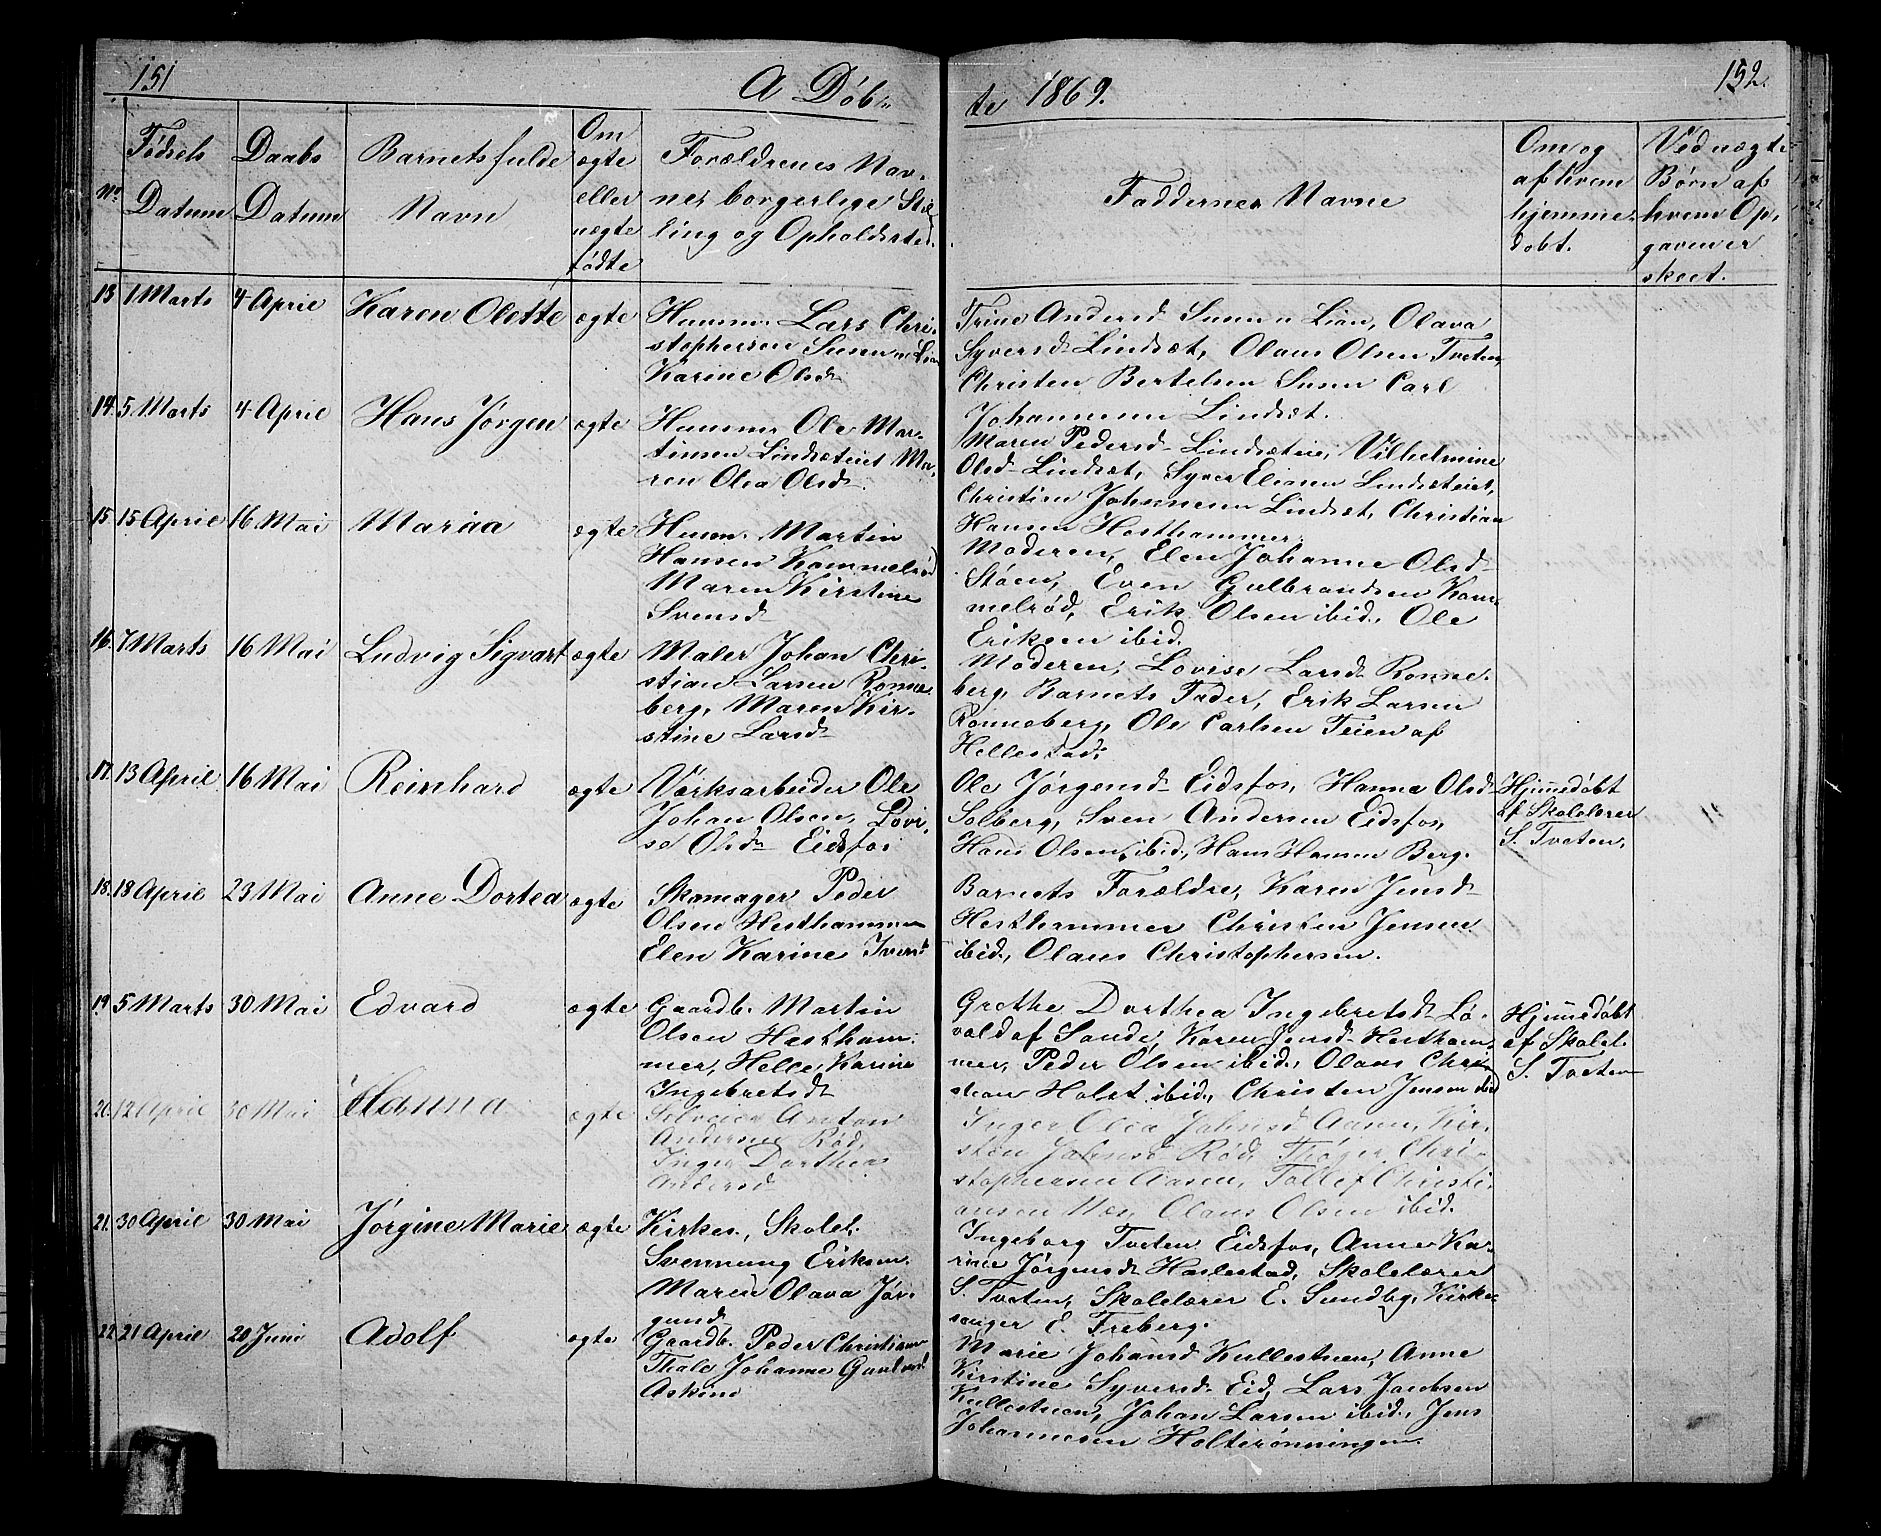 151
A Døb
te 1869.
152.
No
Fødsels Datum
Daabs Datum
Barnets fulde Navn
Om ægte eller uægte fødte
Forældrenes Navne, borgerlige Stilling og Opholdssted.
Faddernes Navne
Om og af hvem hjemmedøbt.
Ved uægte Børn af hvem Opgaven er skeet.
13 1 Marts 4 April Karen Olette ægte
Huusm. Lars Chri-
stophersen
Karine Olsd
Trine Andersd Lian, Olava
Syversd Lindsæt, Olaus Olsen Tveten,
Christen Bertelsen Carl
Johannesen Lindsæt.
14. 5 Marts 4 April Hans Jørgen ægte
Huusm. Ole Mar-
tinsen Lindsæteiet Ma-
ren Olea Olsd.
Maren Pedersd Lindsæteie, Vilhelmine
Olsd Lindsæt, Syver Eliasen Lindsæteiet,
Christian Johannesen Lindsæt, Christian
Hansen Hesthammer.
15 15 April 16 Mai Mariaa ægte
Huusm. Martin
Hansen Kammelrød
Maren Kirstine
Svensd
Moderen, Elen Johanne Olsd
Støen, Even Gulbrandsen Kam-
melrød, Erik Olsen ibid., Ole
Eriksen ibid.
16. 7 Marts 16 Mai Ludvig Sigvart ægte
Maler Johan Chri-
stian Larsen Ronne-
berg, Maren Kir-
stine Larsd
Moderen, Lovise Larsd Ronne-
berg, Barnets Fader, Erik Larsen
Ronneberg, Ole Carlsen Teien af
Hellestad.
17. 13 April 16 Mai Reinhard ægte
Værksarbeider Ole
Johan Olsen, Lovi-
se Olsd Eidsfos
Ole Jørgensd Eidsfos, Hanna Olsd
Solberg, Sven Andersen Eidsfos,
Hans Olsen, ibid., Hans Hansen Berg.
Hjemmedøbt
af Skolelærer
S. Tveten,
18. 18 April 23 Mai Anne Dortea ægte
Skomager Peder
Olsen Hesthammer
Elen Karine Iversd
Barnets Forældre, Karen Jensd
Hesthammer Christen Jensen
ibid., Olaus Christophersen.
19 5 Marts 30 Mai Edvard ægte
Gaardb. Martin
Olsen Hestham-
mer, Helle Karine
Ingebretsd
Grethe Dorthea Ingebretsd Lø-
vald af Sande, Karen Jensd Hestham-
mer, Peder Olsen ibid., Olaus Chri-
stian Holst ibid., Christen Jensen ibid
Hjemmedøbt
af Skolel.
S. Tveten
20. 12 April 30 Mai Hanna ægte
Selveier Anton
Andersen Rød,
Inger Dorthea
Andersd
Inger Olea Johnsd Aasen, Kir-
sten Johnsd Rød, Thøger Chri-
stophersen Aasen, Tollef Christi-
ansen Olaus Olsen ibid.
21. 30 April 30 Mai Jørgine Marie ægte
Kirkes., Skolel.
Svennung Eriksen.
Maren Olava Jør-
gensd
Ingeborg Tveten Eidsfos, Anne Ka-
rine Jørgensd Haslestad, Skolelærer
S. Tveten, Skolelærer E. Sundby, Kirke-
sanger E. Freberg.
22. 21 April 20 Juni Adolf ægte
Gaardb. Peder Christian
Thale Johanne
Marie Johansd Kullestuen, Anne
Kirstine Syversd Eid, Lars Jacobsen
Kullestuen, Johan Larsen ibid., Jens
Johannesen Holterønningen.